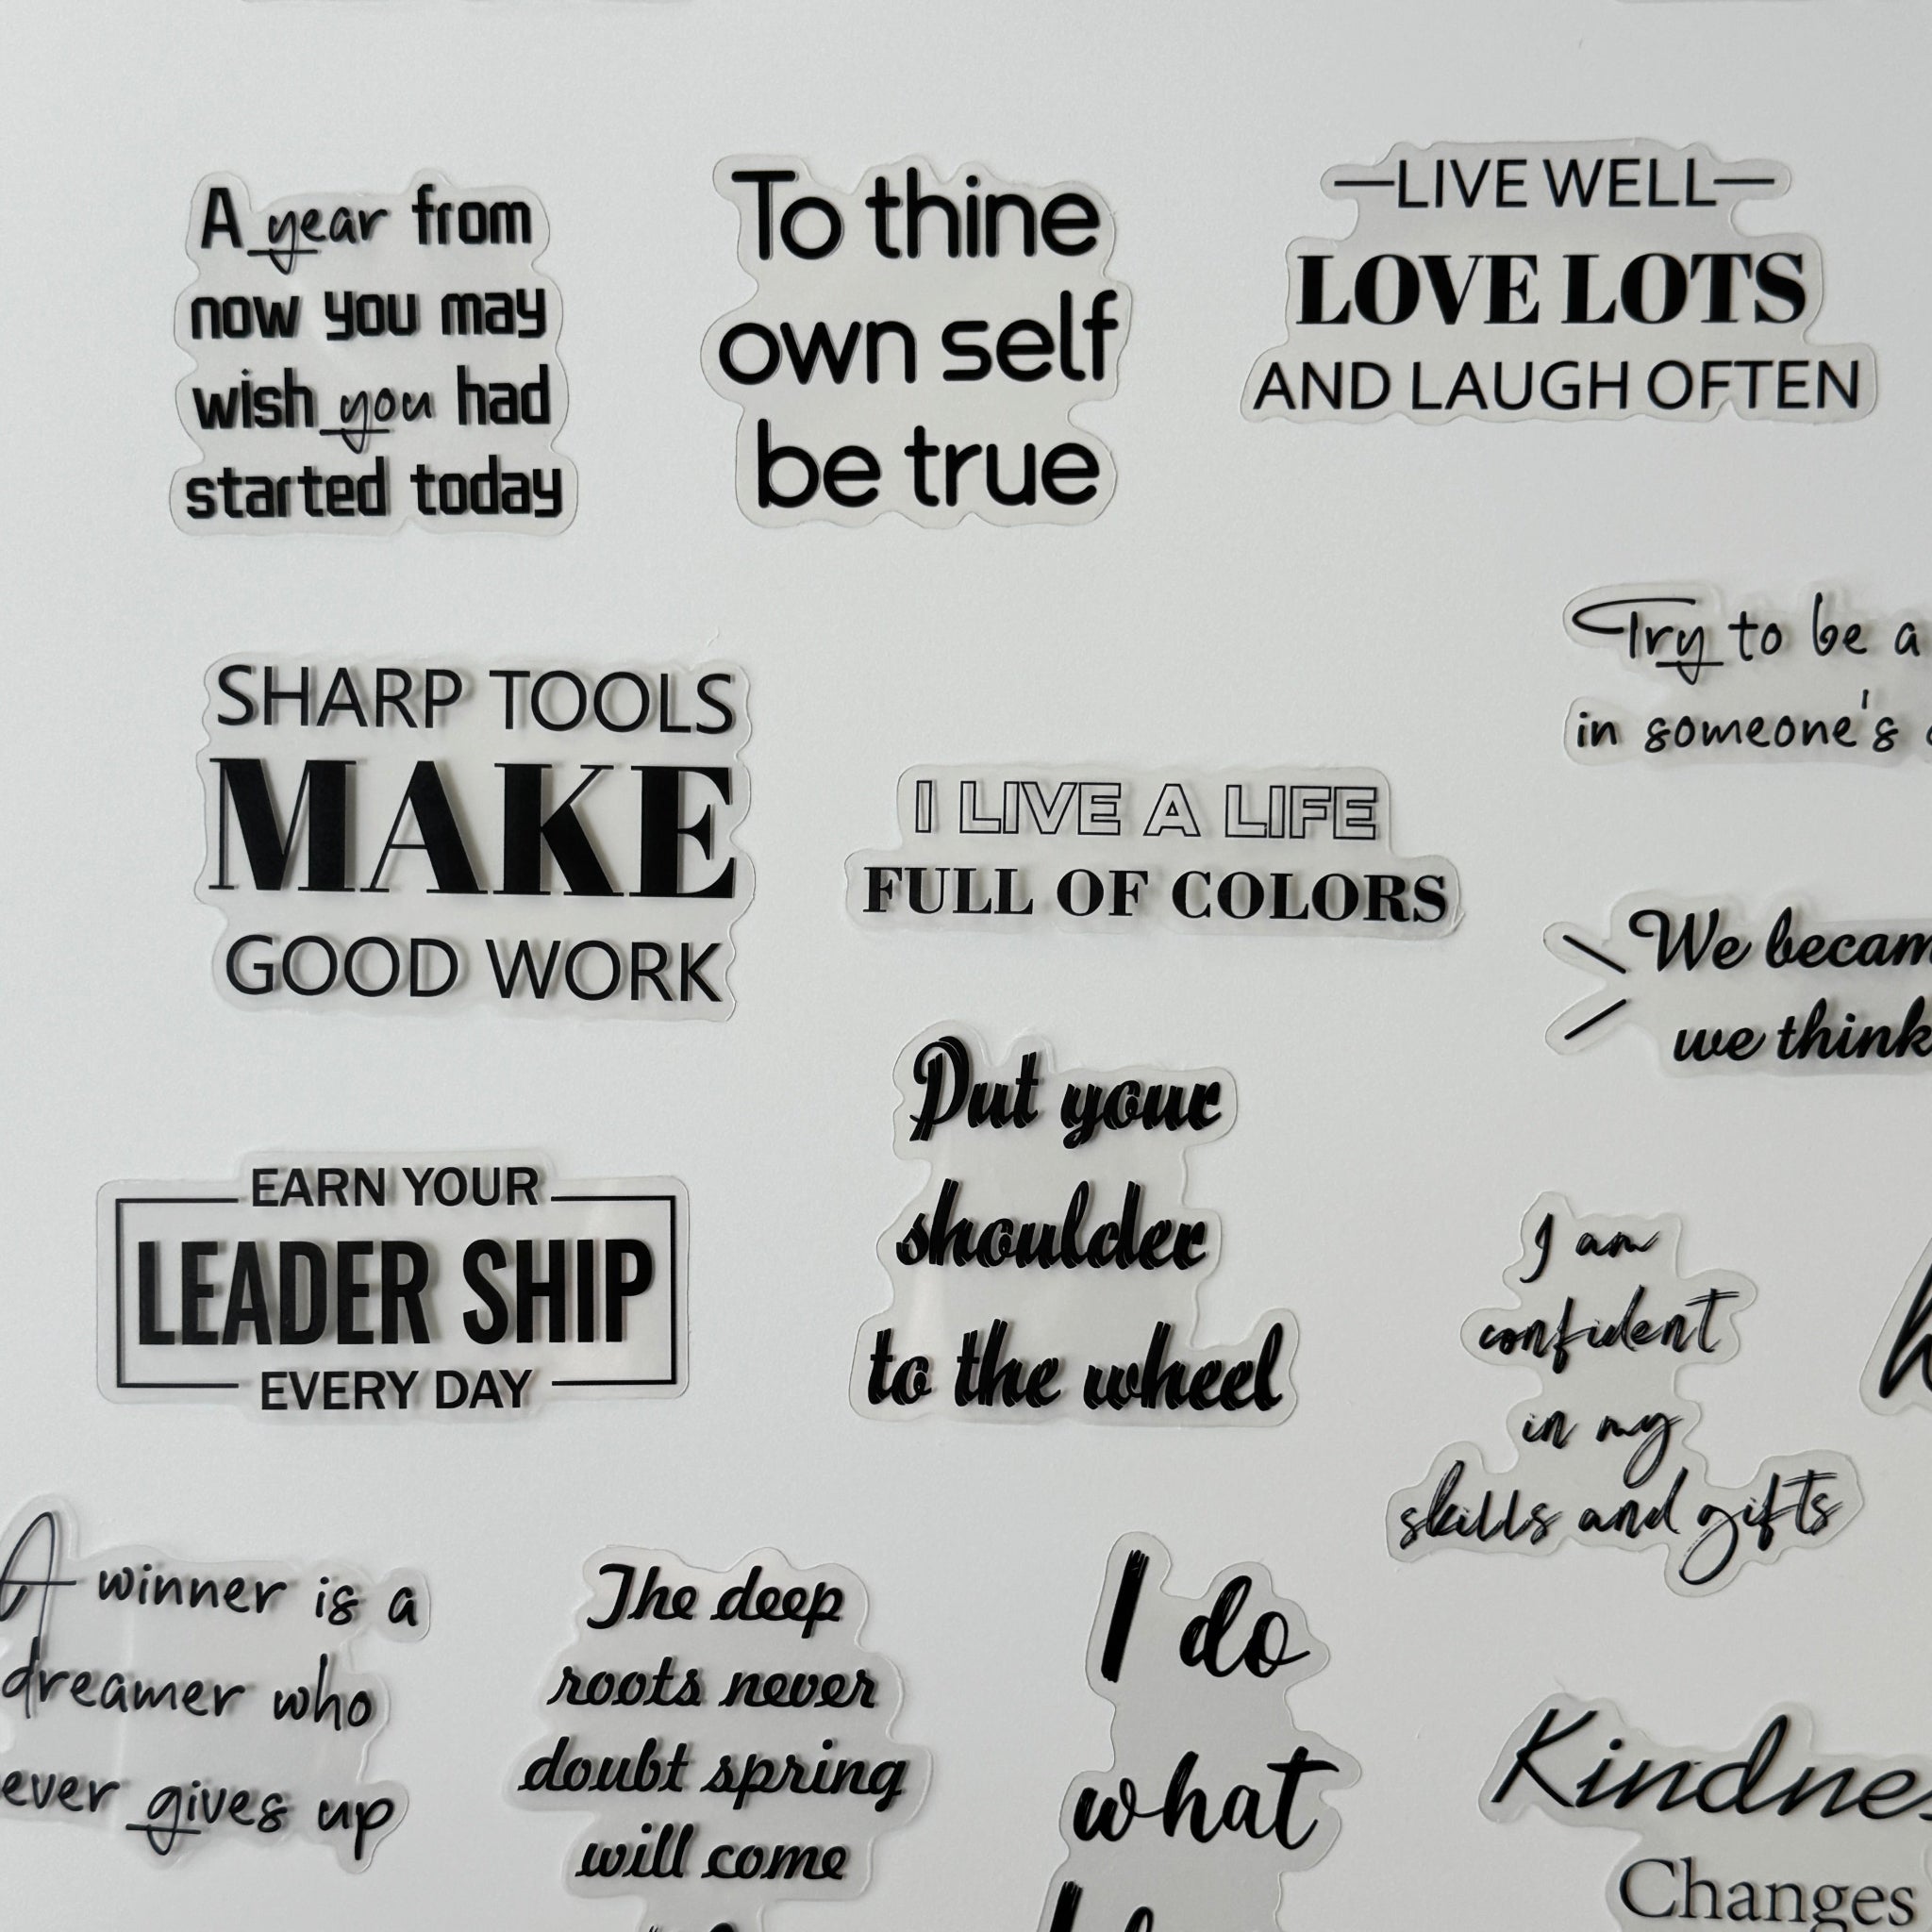 A year from
now you may
wish you had
started today
To thine
own self
be true
LIVE WELL
LOVE LOTS
AND LAUGH OFTEN
Try to be a
in someone's
SHARP TOOLS
MAKE
GOOD WORK
I LIVE A LIFE
FULL OF COLORS
We becam
we think
EARN YOUR
LEADER SHIP
EVERY DAY
Put your
shoulder
to the wheel
I am
confident
in my
skills and gifts
A winner is a
dreamer who
ever gives up
The deep
roots never
doubt spring
will come
I do
what
Kindnes
Changes